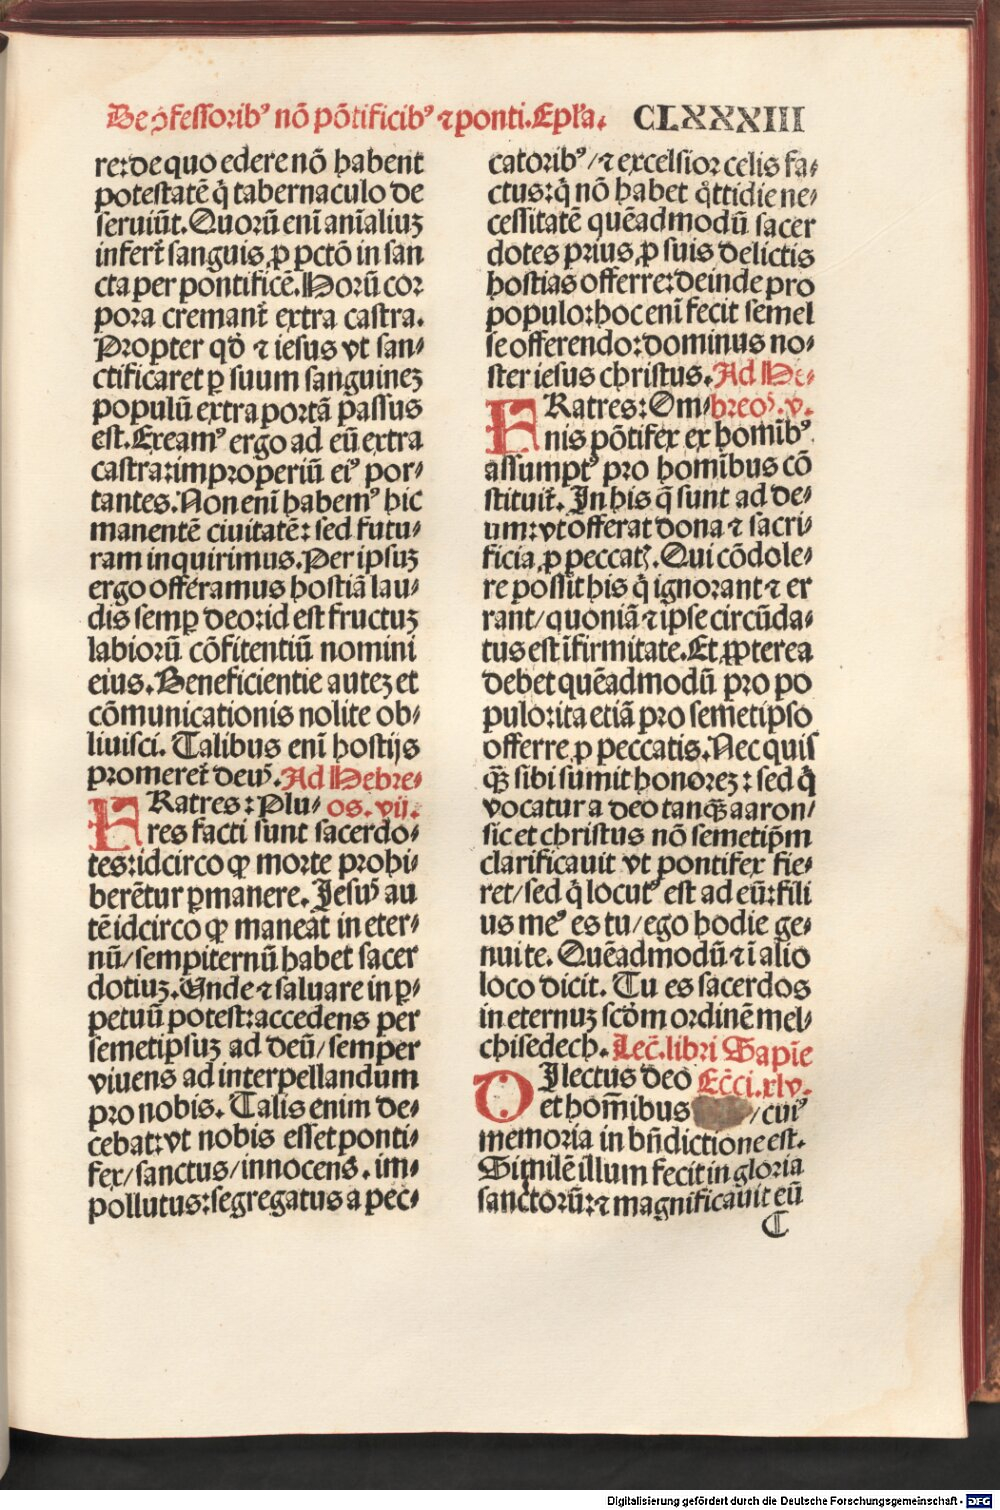 De ꝯfessoribꝰ nō pōtificibꝰ ⁊ ponti. Epl'a. CLXXXIII
re: de quo edere nō habent
potestatē q̇ tabernaculo de
seruiūt. Quorū enī anīaliuꝫ
infert̄ sanguis, ꝓ pctō in san
cta per pontificē. Horū cor
pora cremant̄ extra castra.
Propter qd̓ ⁊ iesus vt san⸗
ctificaret ꝑ suum sanguineꝫ
populū extra portā passus
est. Exeamꝰ ergo ad eū extra
castra: improperiū eiꝰ por⸗
tantes. Non enī habemꝰ hic
manentē ciuitatē: sed futu⸗
ram inquirimus. Per ipsuꝫ
ergo offeramus hostiā lau⸗
dis semꝑ deo: id est fructuꝫ
labiorū cōfitentiū nomini
eius. Beneficientie auteꝫ et
cōmunicationis nolite ob⸗
liuisci. Talibus enī hostijs
promeret̄ deꝰ. Ad Hebre⸗
FRatres: Plu⸗ os. vij.
res facti sunt sacerdo⸗
tes: idcirco ꝙ morte prohi⸗
berētur ꝑmanere. Jesus au
tē idcirco ꝙ maneat in eter⸗
nū/ sempiternū habet sacer
dotiuꝫ. Unde ⁊ saluare in ꝑ⸗
petuū potest: accedens per
semetipsuꝫ ad deū/ semper
viuens ad interpellandum
pro nobis. Talis enim de⸗
cebat: vt nobis esset ponti⸗
fex/ sanctus/ innocens. im⸗
pollutus: segregatus a pec⸗
catoribꝰ/ ⁊ excelsior celis fa⸗
ctus: q̇ nō habet q̊ttidie ne⸗
cessitatē quēadmodū sacer
dotes prius, ꝓ suis delictis
hostias offerre: deinde pro
populo: hoc enī fecit semel
se offerendo: dominus no⸗
ster iesus christus. Ad He⸗
FRatres: Om⸗ breoꝝ. v.
nis pōtifex ex homībꝰ
assumptꝰ pro homībus cō
stituit̄. In his q̄ sunt ad de⸗
um: vt offerat dona ⁊ sacri⸗
ficia, ꝓ peccatꝭ. Qui cōdole⸗
re possit his q̇ ignorant ⁊ er
rant/ quoniā ⁊ ipse circūda⸗
tus est īfirmitate. Et ꝓpterea
debet quēadmodū pro po
pulo: ita etiā pro semetipso
offerre ꝓ peccatis. Nec quis
qꝫ̄ sibi sumit honoreꝫ: sed q̇
vocatur a deo tanqꝫ̄ aaron/
sic et christus nō semetip̄m
clarificauit vt pontifex fie⸗
ret/ sed q̇ locutꝰ est ad eū: fili
us meꝰ es tu/ ego hodie ge⸗
nui te. Quēadmodū ⁊ ī alio
loco dicit. Tu es sacerdos
in eternuꝫ scd̓m ordinē mel⸗
chisedech. Lec̄. libri Sapīe
DIlectus deo Ecc̄i. xlv.
et hom̄ibus /cuiꝰ
memoria in bn̄dictione est.
Similē illum fecit in gloria
sanctorū: ⁊ magnificauit eū
C
Digitalisierung gefördert durch die Deutsche Forschungsgemeinschaft - DFG